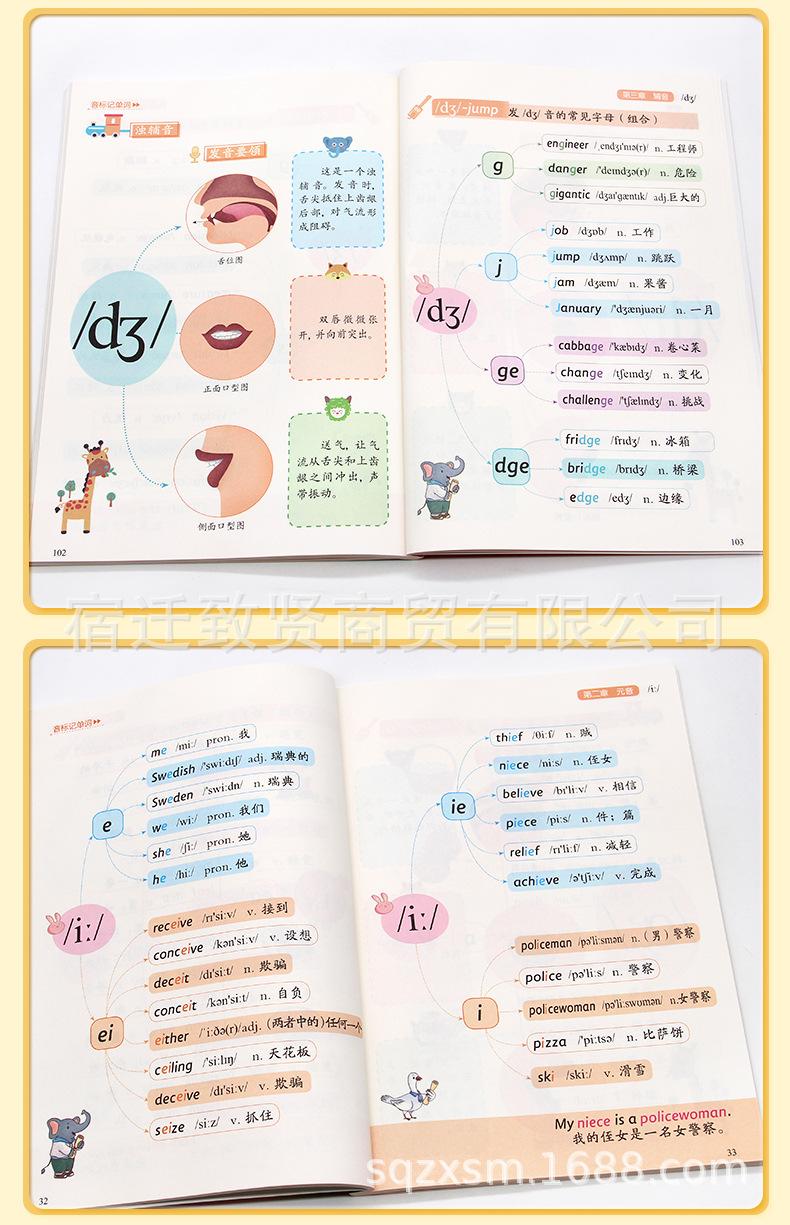 音标记单词
浊辅音
发音要领
这是一个浊
辅音。发音时,
舌尖抵住上齿龈
后部,对气流形
成阻碍。
舌位图
/dʒ/
双唇微微张
开,并向前突出。
正面口型图
送气,让气
流从舌尖和上齿
龈之间冲出,声
带振动。
侧面口型图
102
第三章 辅音 /dʒ/
/dʒ/-jump 发 /dʒ/ 音的常见字母(组合)
/dʒ/
g
engineer /ˌendʒɪ'nɪə(r)/ n. 工程师
danger /'deɪndʒə(r)/ n. 危险
gigantic /dʒaɪ'ɡæntɪk/ adj.巨大的
j
job /dʒɒb/ n. 工作
jump /dʒʌmp/ n. 跳跃
jam /dʒæm/ n. 果酱
January /'dʒænjuəri/ n. 一月
ge
cabbage /'kæbɪdʒ/ n. 卷心菜
change /tʃeɪndʒ/ n. 变化
challenge /'tʃælɪndʒ/ n. 挑战
dge
fridge /frɪdʒ/ n. 冰箱
bridge /brɪdʒ/ n. 桥梁
edge /edʒ/ n. 边缘
103
宿迁致贤商贸有限公司
音标记单词
/iː/
e
me /miː/ pron. 我
Swedish /'swiːdɪʃ/ adj. 瑞典的
Sweden /'swiːdn/ n. 瑞典
we /wiː/ pron. 我们
she /ʃiː/ pron. 她
he /hiː/ pron. 他
ei
receive /rɪ'siːv/ v. 接到
conceive /kən'siːv/ v. 设想
deceit /dɪ'siːt/ n. 欺骗
conceit /kən'siːt/ n. 自负
either /'iːðə(r)/adj. (两者中的)任何一个
ceiling /'siːlɪŋ/ n. 天花板
deceive /dɪ'siːv/ v. 欺骗
seize /siːz/ v. 抓住
32
第二章 元音 /iː/
/iː/
ie
thief /θiːf/ n. 贼
niece /niːs/ n. 侄女
believe /bɪ'liːv/ v. 相信
piece /piːs/ n. 件;篇
relief /rɪ'liːf/ n. 减轻
achieve /ə'tʃiːv/ v. 完成
i
policeman /pə'liːsmən/ n.(男)警察
police /pə'liːs/ n. 警察
policewoman /pə'liːswʊmən/ n.女警察
pizza /'piːtsə/ n. 比萨饼
ski /skiː/ v. 滑雪
My niece is a policewoman.
我的侄女是一名女警察。
33
sqzxsm.1688.com